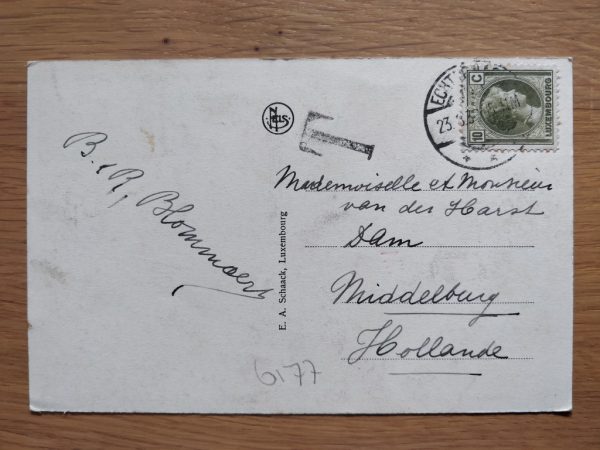 B. & R. Blommaert
E. A. Schaack, Luxembourg
Nels
T
ECHT
23
10 C
LUXEMBOURG
Mademoiselle et Monsieur
van der Harst
Dam
Middelburg
Hollande
6177